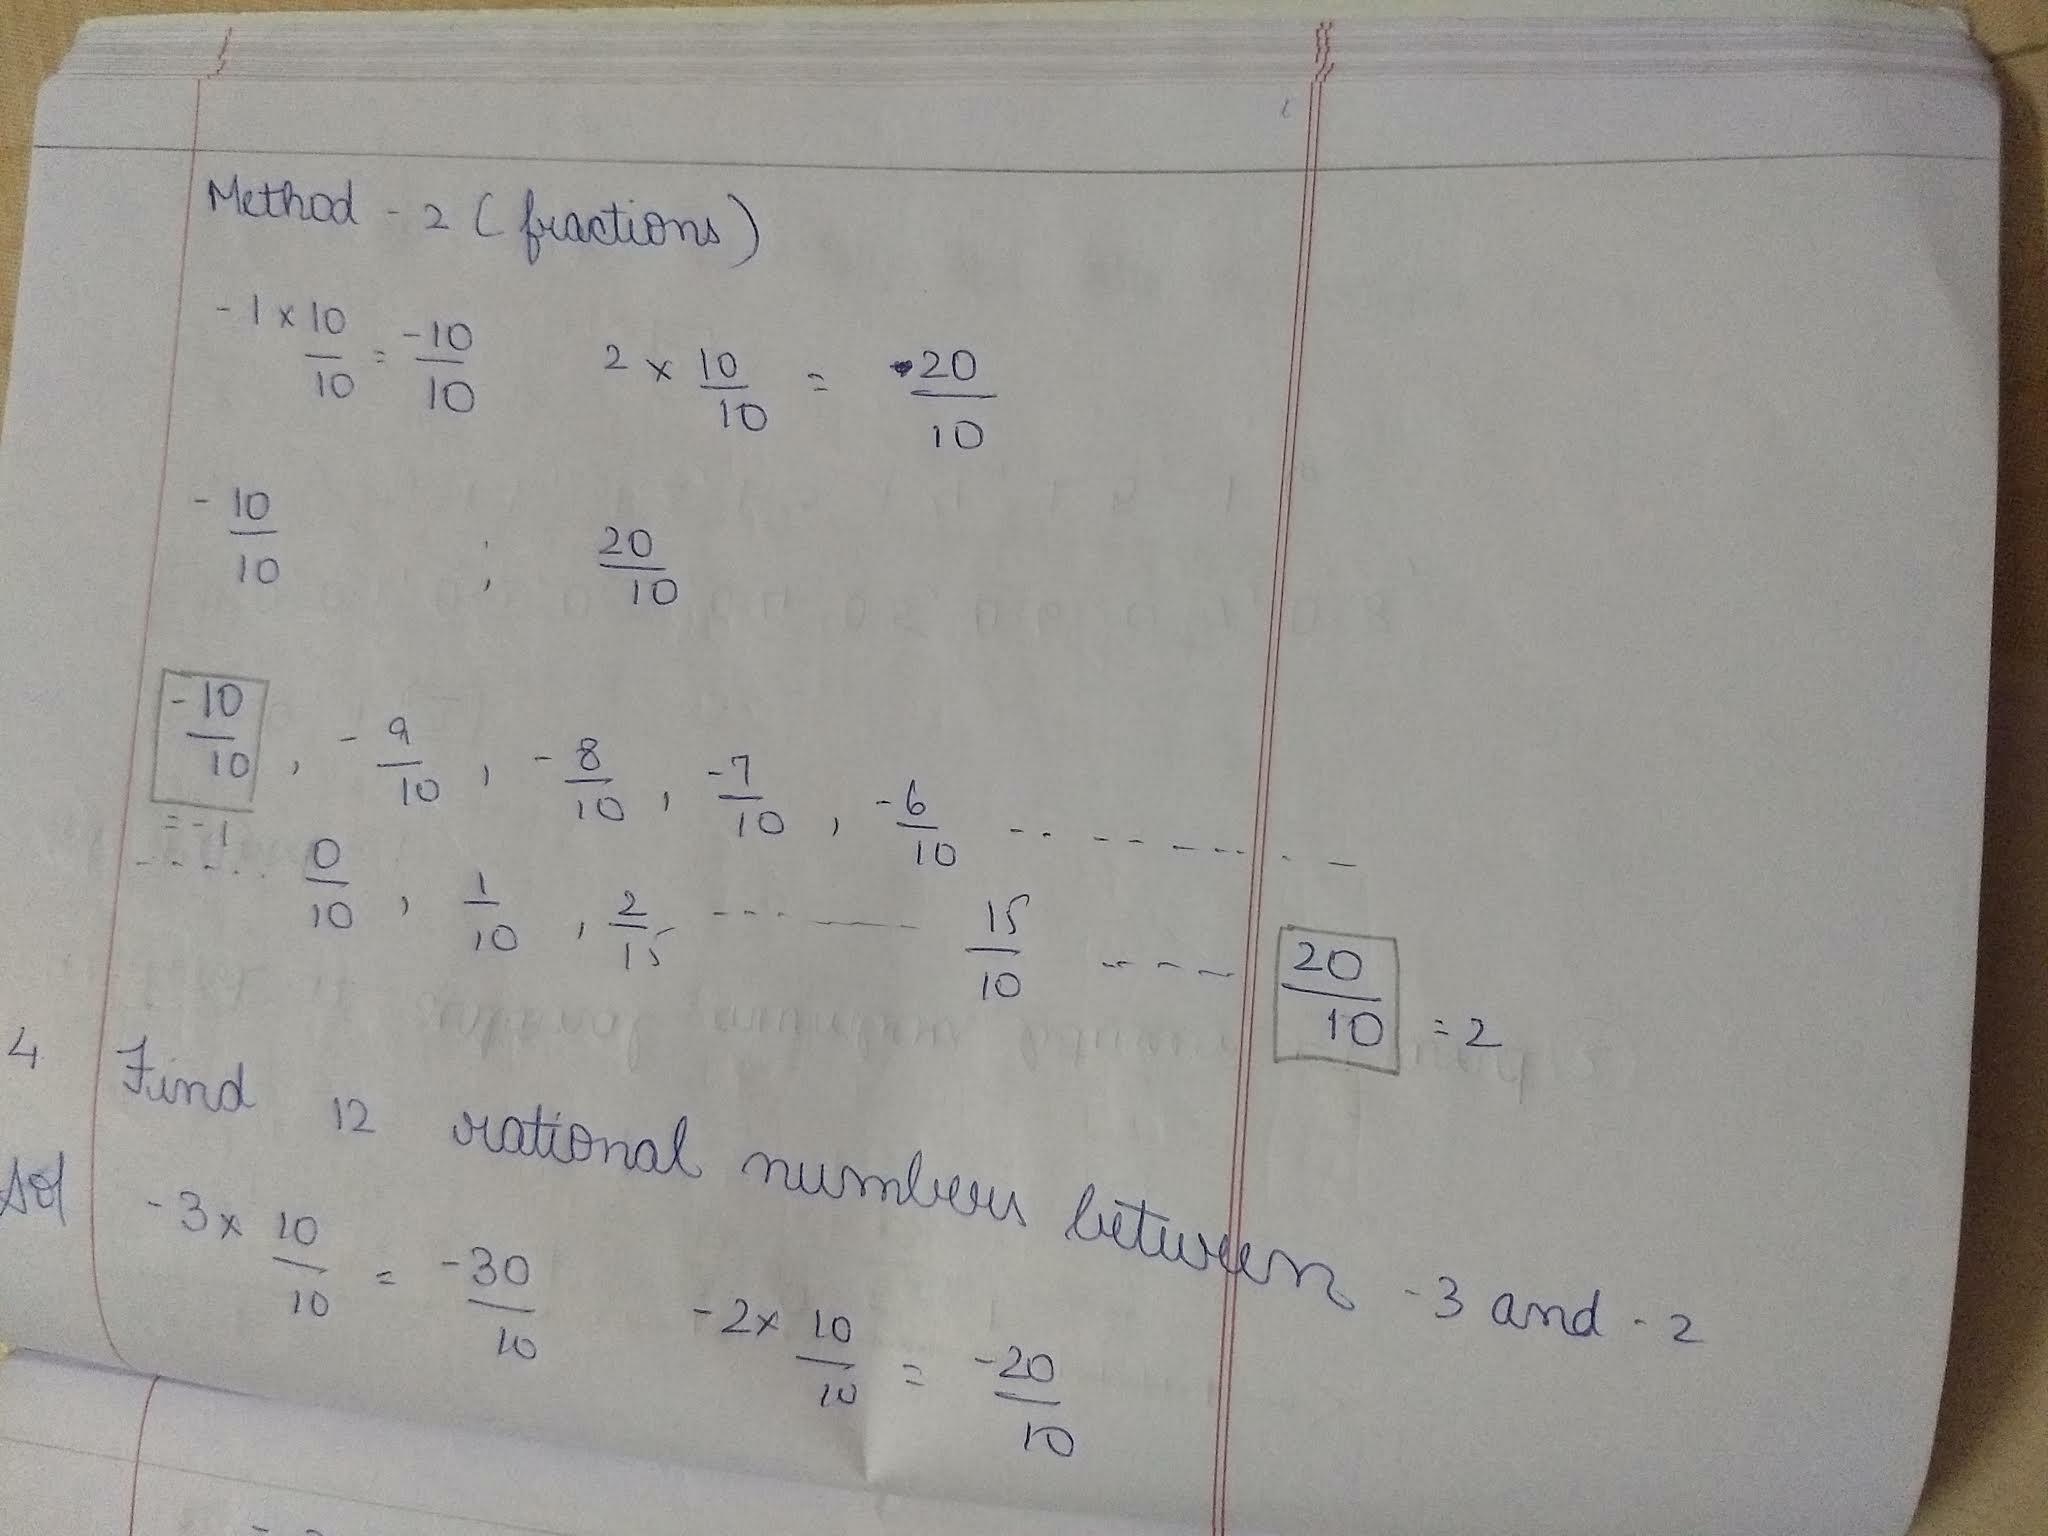 Method - 2 (fractions)
-1 × 10/10 = -10/10   2 × 10/10 = 20/10
-10/10 ; 20/10
-10/10, -9/10, -8/10, -7/10, -6/10 ----------
= -1
----- 0/10, 1/10, 2/15 ------ 15/10 ---- 20/10 = 2
4 Find 12 rational numbers between -3 and -2
Sol -3 × 10/10 = -30/10   -2 × 10/10 = -20/10